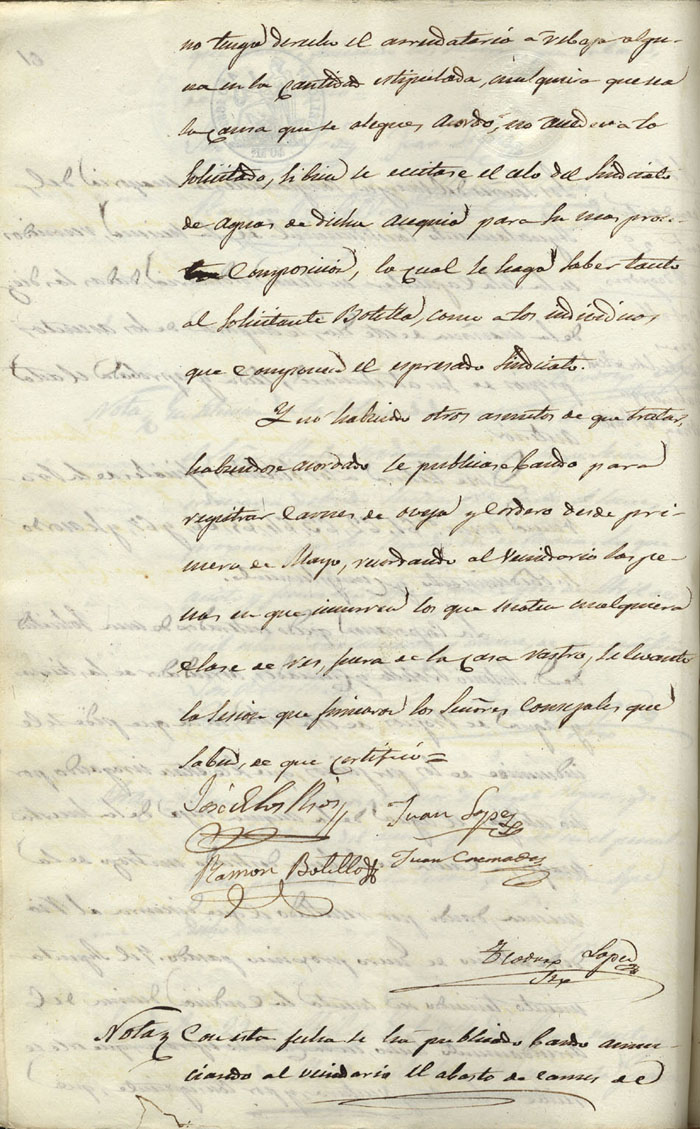 no tenga derecho el arrendatario a rebaja algu-
na en la cantidad estipulada, cualquiera que sea
la causa que se alegue, acordó, no acceder a lo
solicitado, si bien se escitase el celo del Sindicato
de aguas de dicha acequia para su mas pron-
ta composicion, lo cual se haga saber tanto
al solicitante Botella, como a los individuos,
que componen el espresado Sindicato.
Y no habiendo otros asuntos de que tratar,
habiendose acordado se publicase bando para
registrar carnes de oveja y cordero desde pri-
mero de Mayo, recordando al vecindario las pe-
nas en que incurren los que maten cualquiera
clase de res, fuera de la casa rastro, se levantó
la sesion que firmaron los Señores Consejales que
saben, de que certifico =
José de los Rios Juan Lopez
Ramon Botella Juan
Lopez
Srio
Nota Con esta fecha se ha publicado bando anun-
ciando al vecindario el abasto de carnes de